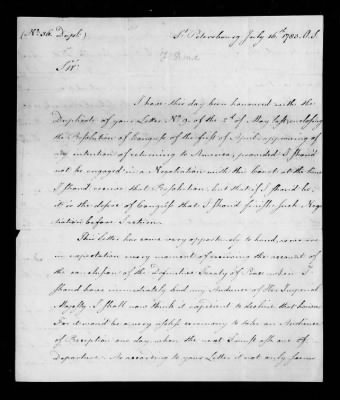 (No. 36. Dupl.)
St. Petersbourg July 16th. 1783. O.S.
F. Dana
Sir.
I have this day been honoured with the
Duplicate of your Letter No. 9. of the 2d. of May last, enclosing
the Resolution of Congress of the first of April approving of
my intention of returning to America, provided I should
not be engaged in a Negotiation with this Court at the time
I should receive that Resolution, but that if I should be,
it is the desire of Congress that I should finish such Nego-
tiation before I return.
This Letter has come very opportunely to hand, as we are
in expectation every moment of receiving the account of
the conclusion of the Definitive Treaty of Peace when I
should have immediately had my Audience of Her Imperial
Majesty. I shall now think it expedient to decline that honour
For it would be a very useless ceremony to take an Audience
of Reception one day, when the next I must ask one of
Departure. As according to your Letter it not only seems